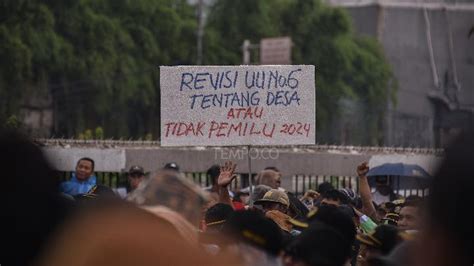 REVISI UU No.6
TENTANG DESA
ATAU
TIDAK PEMILU 2024
TEMPO.CO